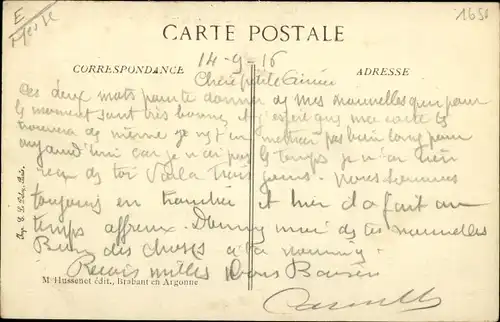 E
Meuse
1650
CARTE POSTALE
14-9-16
CORRESPONDANCE
ADRESSE
Chère petite Aimée
Ces deux mots pour te donner de mes nouvelles qui pour
le moment sont très bonnes et j'espère que ma carte te
trouvera de même je vais t'en mettrai pas bien long pour
aujourd'hui car je n'ai pas le temps je n'ai rien
reçu de toi Voila trois jours. nous sommes
toujours en tranchée et hier il a fait un
temps affreux. Donnez moi de tes nouvelles
Bien des choses a ta
Reçois milles Bons Baisers
M. Hussenet édit., Brabant en Argonne